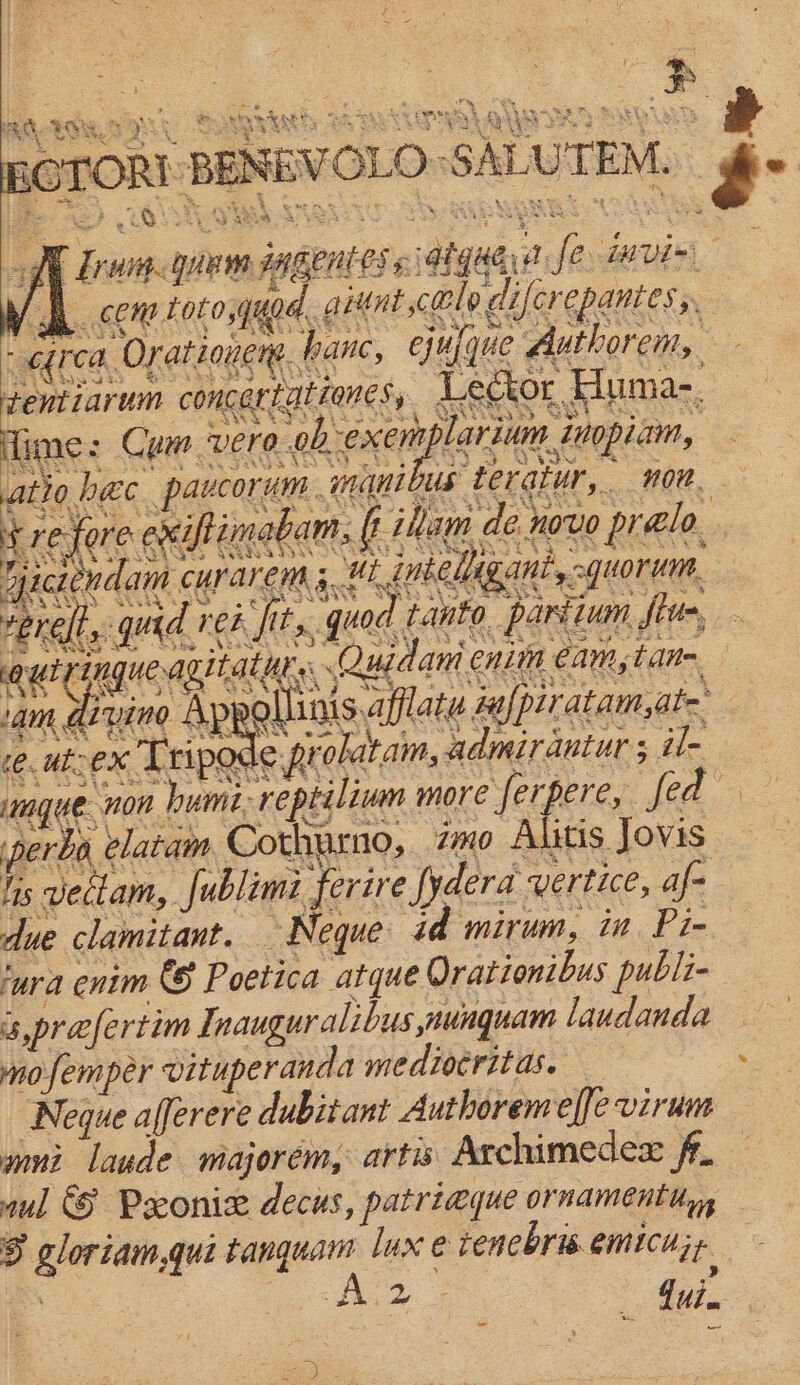 ECTORI BENEVOLO SALUTEM.
Irum quem ingentes, atque à ſe invi-
cem toto, quod aiunt, cœlo diſcrepantes,
circa Orationem hanc, ejuſque Authorem,
tentiarum concertationes, Lector Huma-
ſſime: Cum vero ob exemplarium inopiam,
atio hæc paucorum manibus teratur, non
refore exiſtimabam, ſi illam de novo prælo
jiciendam curarem; ut intelligant, quorum
tereſt, quid rei ſit, quod tanto partium ſtu-
outrinque agitatur. Quidam enim eam, tan-
am divino Appollinis afflatu inſpiratam, at-
e ut ex Tripode prolatam, admirantur; il-
mque non humi reptilium more ſerpere, ſed
perba elatam Cothurno, imo Alitis Jovis
is vectam, ſublimi ferire ſydera vertice, aſ-
due clamitant. Neque id mirum, in Pi-
ura enim & Poetica atque Orationibus publi-
is, præſertim Inauguralibus, nunquam laudanda
mo ſempèr vituperanda mediocritas.
Neque aſſerere dubitant Authorem eſſe virum
mni laude majorem, artis Archimedeæ ſſ.
mul & Pæoniæ decus, patriæque ornamentum
& gloriam, qui tanquam lux e tenebris emicuit,
A 2 qui-